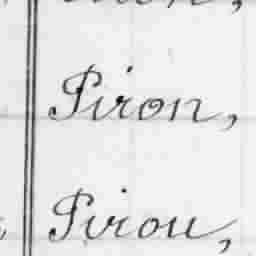 Piron,
Pirou,